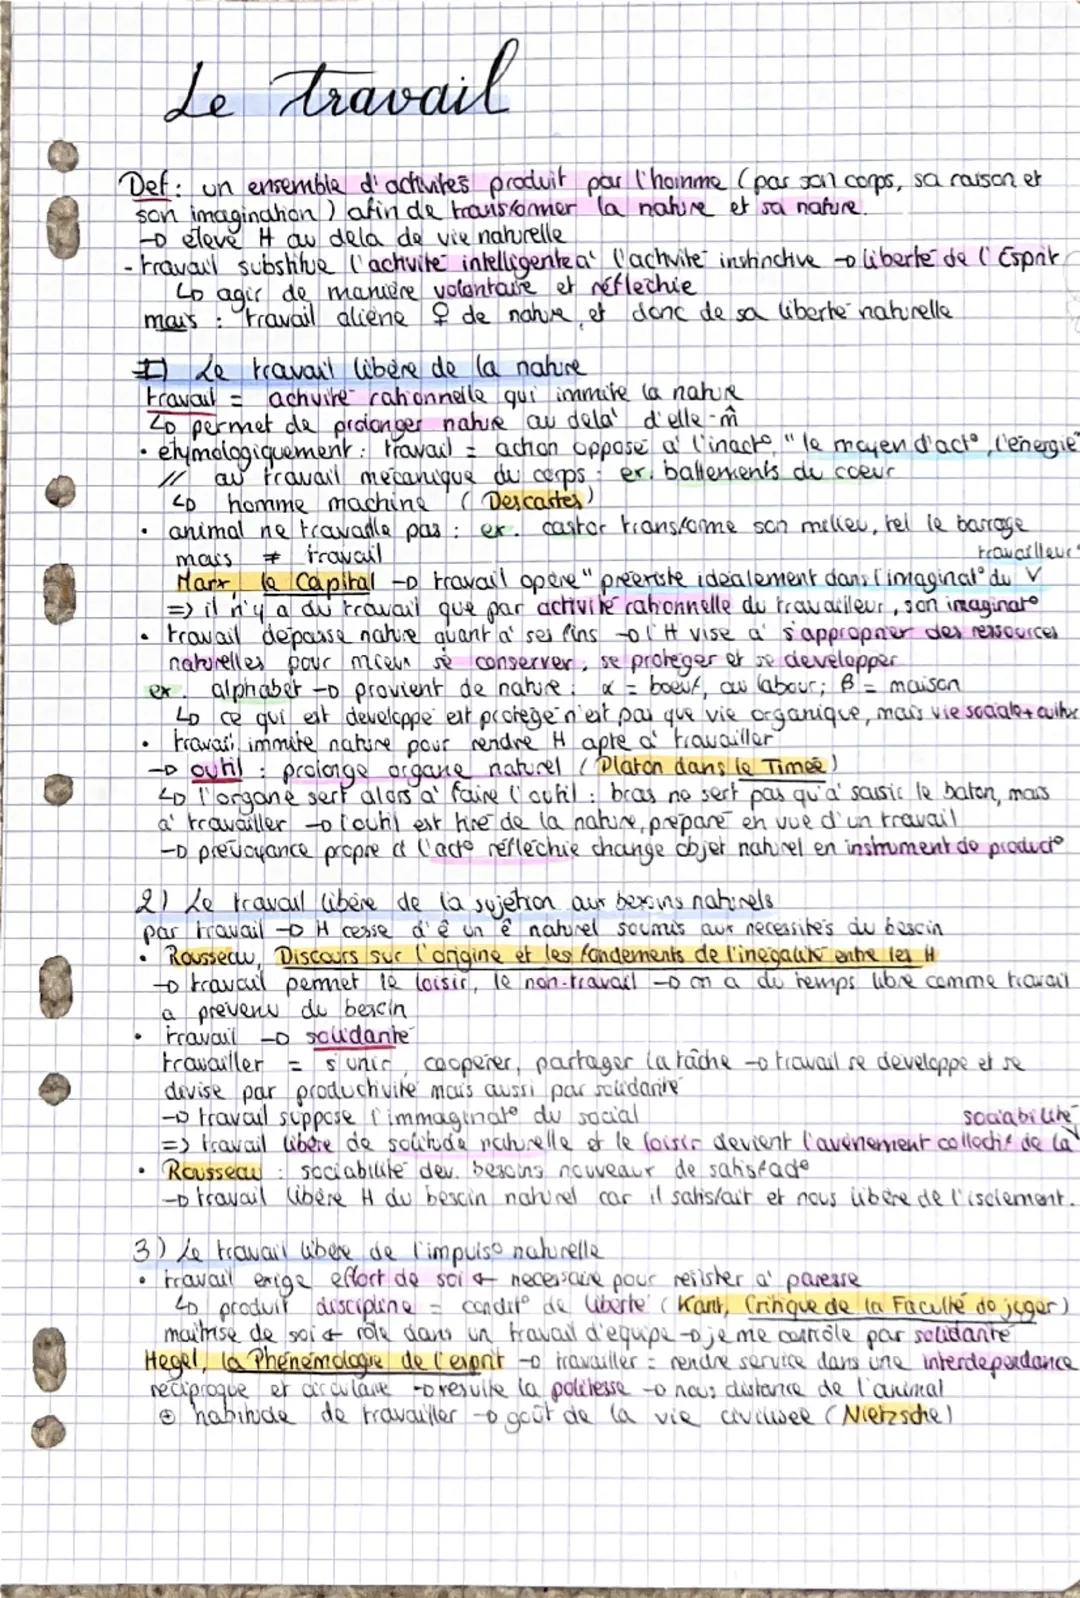 Le travail
Def : un ensemble d'activités produit par l'homme (par son corps, sa raison et
son imagination) afin de transformer la nature et sa nature.
→ élève H au delà de vie naturelle
- travail substitue l'activité intelligente à l'activité instinctive → liberté de l'Esprit
↳ agir de manière volontaire et réfléchie
mais : travail aliène ♀ de nature et donc de sa liberté naturelle
1) Le travail libère de la nature
travail = activité rationnelle qui immite la nature
↳ permet de prolonger nature au delà d'elle-m̂
• etymologiquement : travail = action opposé à l'inact° "le moyen d'act°, l'énergie"
// au travail mécanique du corps : ex. battements du coeur
↳ homme machine (Descartes)
• animal ne travaille pas : ex. castor transforme son milieu, tel le barrage
mais ≠ travail
travailleur
Marx, le Capital → travail opère "préexiste idéalement dans l'imaginat° du V
=> il n'y a du travail que par activité rationnelle du travailleur, son imaginat°
• travail dépasse nature quant à ses fins → l'H vise à s'approprier des ressources
naturelles pour mieux se conserver, se protéger et se développer
ex. alphabet → provient de nature : α = boeuf, au labour; β = maison
↳ ce qui est développé est protégé n'est pas que vie organique, mais vie sociale + cultur
• travail immite nature pour rendre H apte à travailler
→ outil : prolonge organe naturel (Platon dans le Timée)
↳ l'organe sert alors à faire l'outil : bras ne sert pas qu'à saisir le baton, mais
à travailler → l'outil est tiré de la nature, préparé en vue d'un travail
→ prévoyance propre à l'act° réfléchie change objet naturel en instrument de product°
2) Le travail libère de la sujétion aux besoins naturels
par travail → H cesse d'ê un ê naturel soumis aux nécessités du besoin
• Rousseau, Discours sur l'origine et les fondements de l'inégalité entre les H
→ travail permet le loisir, le non-travail → on a du temps libre comme travail
a prévenu du besoin
• travail → solidarité
travailler = s'unir, coopérer, partager la tâche → travail se développe et se
divise par productivité mais aussi par solidarité
→ travail suppose l'immaginat° du social
sociabilité
=> travail libère de solitude naturelle et le loisir devient l'avènement collectif de la V
• Rousseau : sociabilité dev. besoins nouveaux de satisfact°
→ travail libère H du besoin naturel car il satisfait et nous libère de l'isolement.
3) Le travail libère de l'impuls° naturelle
• travail exige effort de soi ← nécessaire pour résister à paresse
↳ produit discipline = condit° de liberté (Kant, Critique de la Faculté de juger)
maîtrise de soi ← rôle dans un travail d'équipe → je me contrôle par solidarité
Hegel, la Phénoménologie de l'esprit → travailler = rendre service dans une interdépendance
réciproque et circulaire → résulte la politesse → nous distance de l'animal
⊕ habitude de travailler → goût de la vie civilisée (Nietzsche)